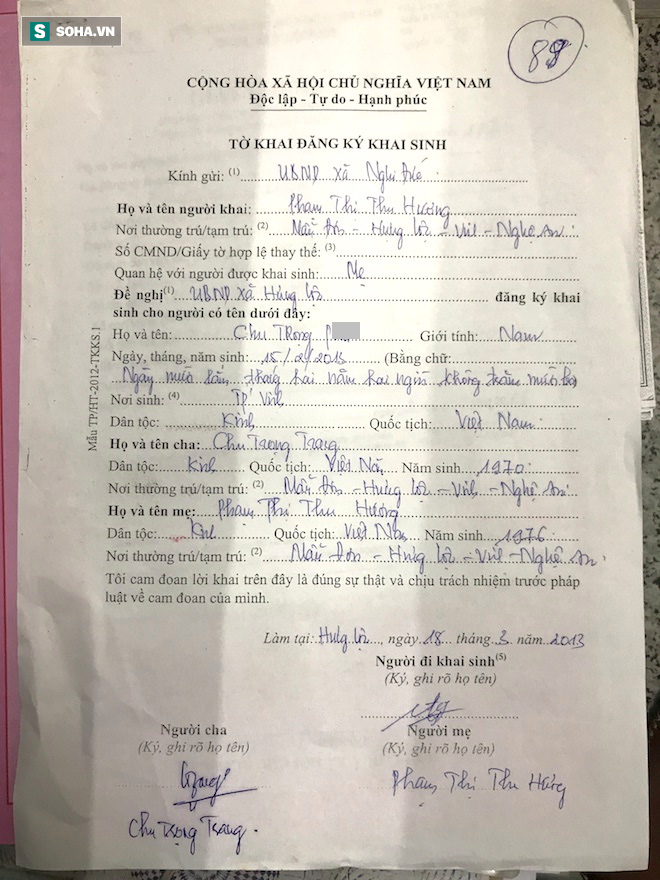 SOHA.VN
89
CỘNG HÒA XÃ HỘI CHỦ NGHĨA VIỆT NAM
Độc lập - Tự do - Hạnh phúc
TỜ KHAI ĐĂNG KÝ KHAI SINH
Kính gửi: (1) UBND xã Nghi
Họ và tên người khai: Phạm Thị Thu Hương
Nơi thường trú/tạm trú: (2) Mẫu Đơn - Hưng Lộc - Vinh - Nghệ An
Số CMND/Giấy tờ hợp lệ thay thế: (3)
Quan hệ với người được khai sinh: Mẹ
Đề nghị(1) UBND xã Hưng Lộc đăng ký khai
sinh cho người có tên dưới đây:
Họ và tên: Chu Trọng Giới tính: Nam
Ngày, tháng, năm sinh: 15/2/2013 (Bằng chữ:
Ngày mười lăm, tháng hai năm hai nghìn không trăm mười ba
Nơi sinh: (4) TP Vinh
Dân tộc: Kinh Quốc tịch: Việt Nam
Họ và tên cha: Chu Trọng Trang
Dân tộc: Kinh Quốc tịch: Việt Nam Năm sinh: 1970
Nơi thường trú/tạm trú: (2) Mẫu Đơn - Hưng Lộc - Vinh - Nghệ An
Họ và tên mẹ: Phạm Thị Thu Hương
Dân tộc: Kinh Quốc tịch: Việt Nam Năm sinh: 1976
Nơi thường trú/tạm trú: (2) Mẫu Đơn - Hưng Lộc - Vinh - Nghệ An
Tôi cam đoan lời khai trên đây là đúng sự thật và chịu trách nhiệm trước pháp
luật về cam đoan của mình.
Làm tại: Hưng Lộc, ngày 18 tháng 3 năm 2013
Người đi khai sinh(5)
(Ký, ghi rõ họ tên)
Người cha Người mẹ
(Ký, ghi rõ họ tên) (Ký, ghi rõ họ tên)
Phạm Thị Thu Hương
Chu Trọng Trang
Mẫu TP/HT-2012-TKKS.1